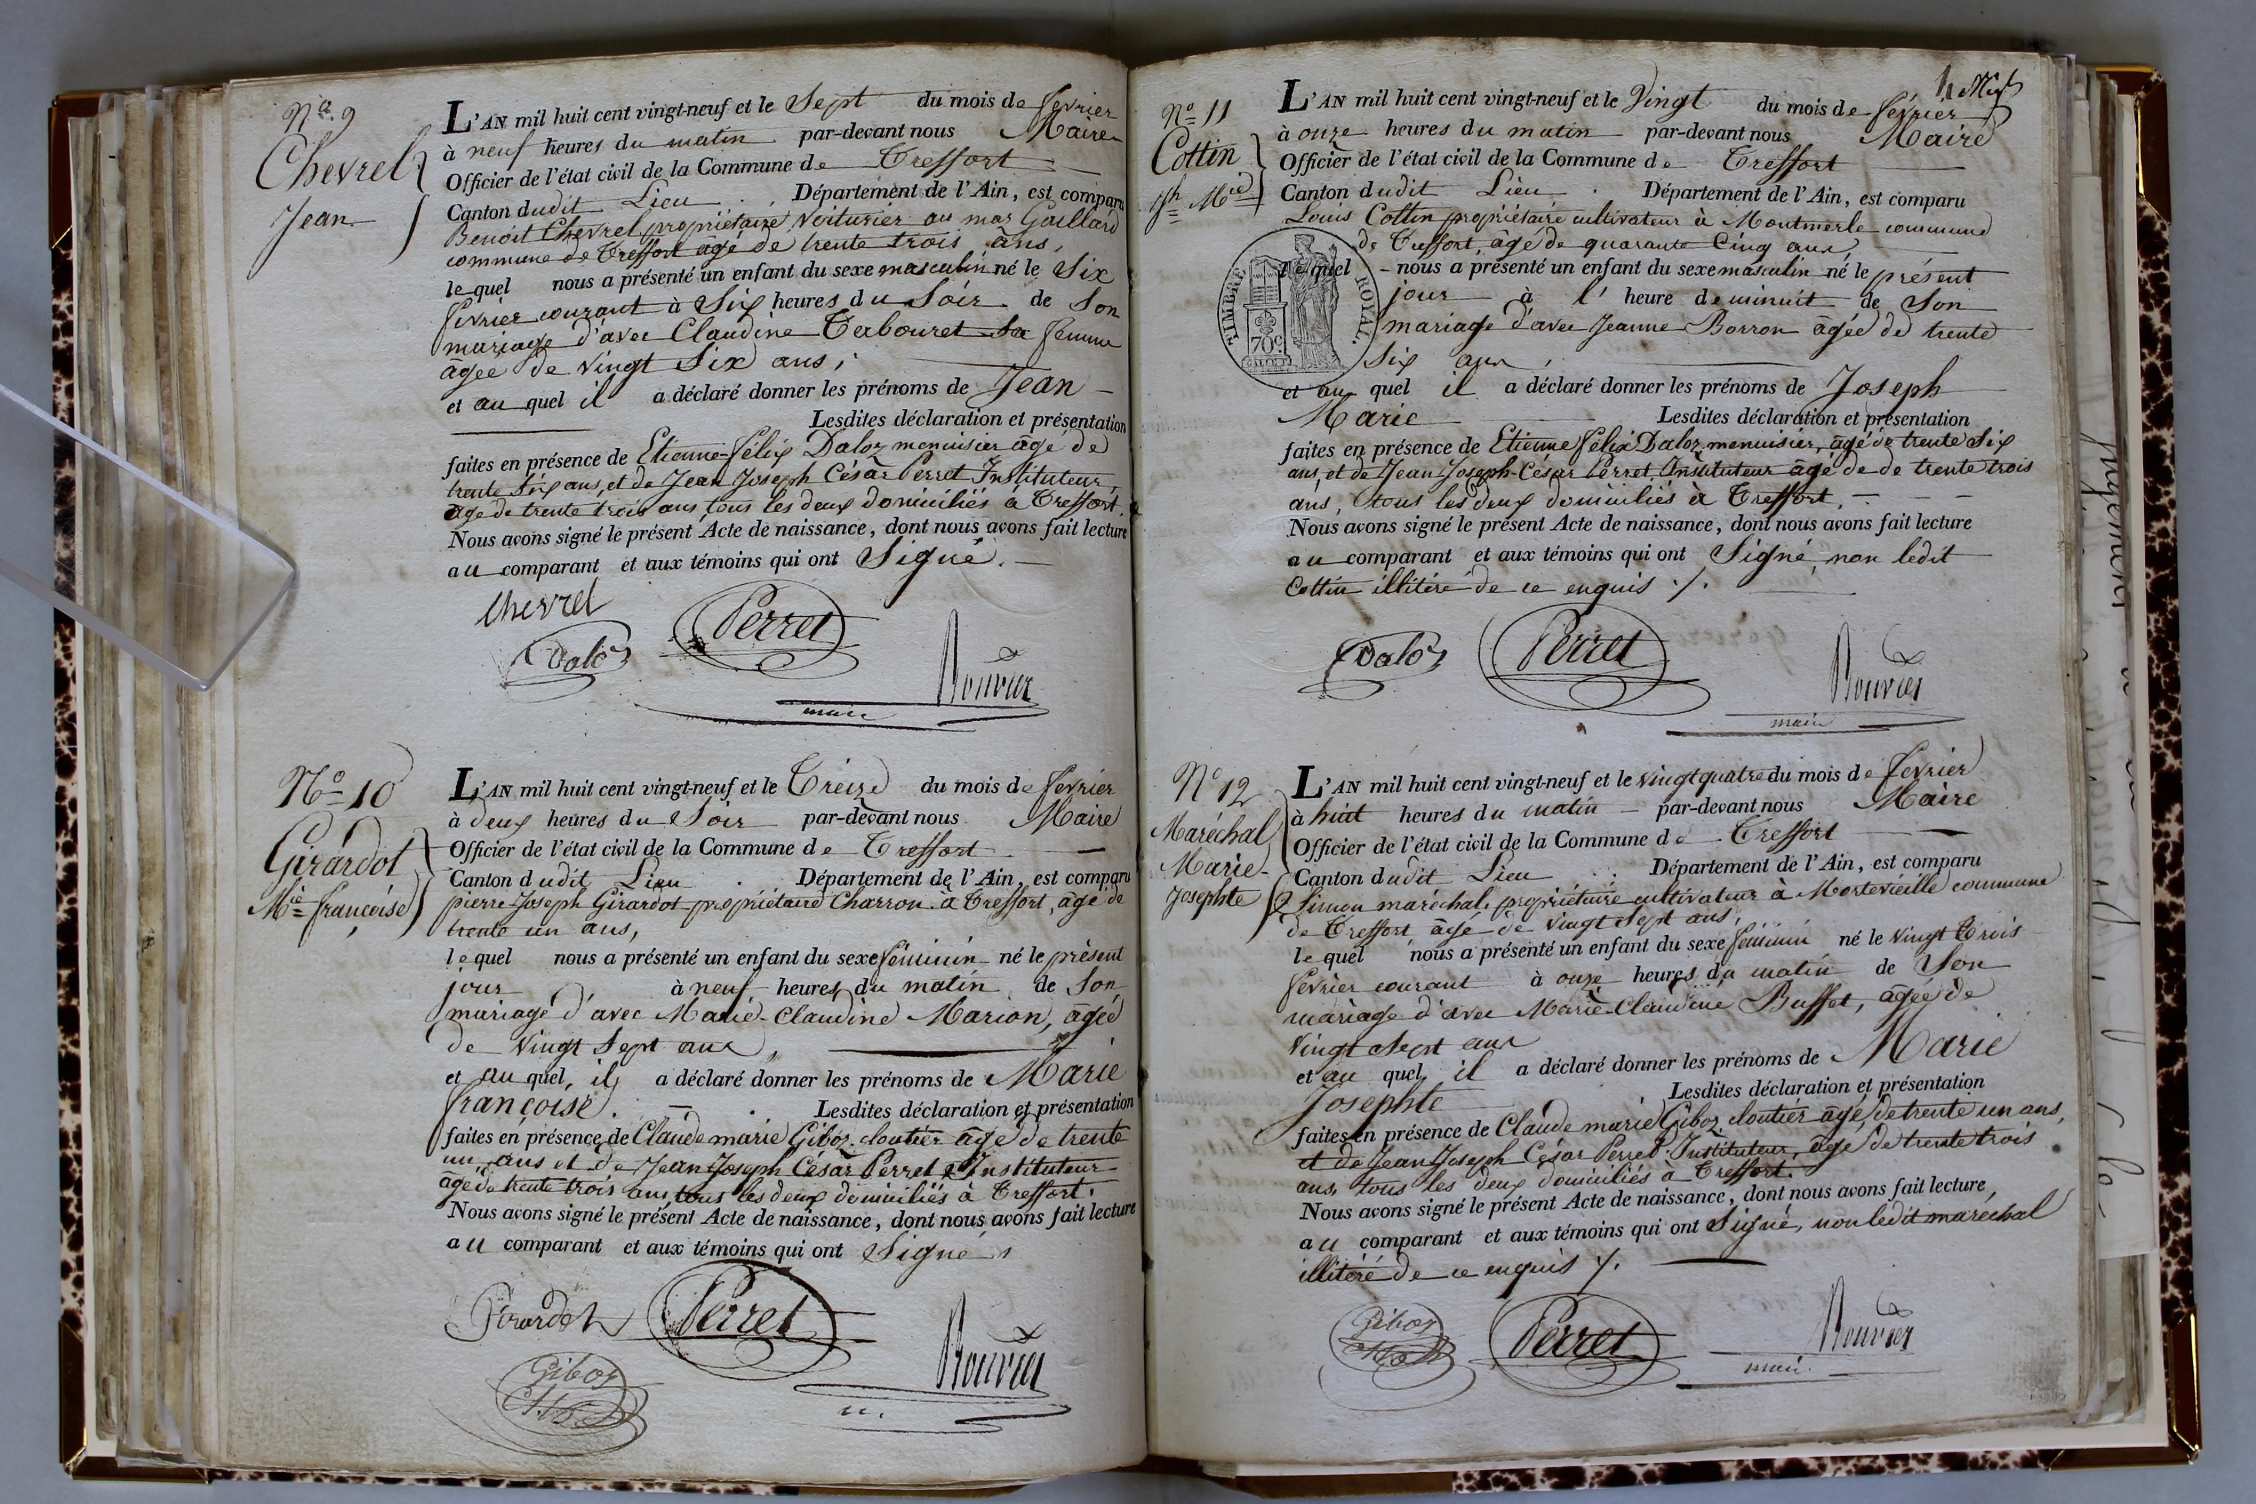 No. 9
Chevrel
Jean
L'AN mil huit cent vingt-neuf et le Sept du mois de fevrier
à neuf heures du matin par-devant nous Maire
Officier de l'état civil de la Commune de Treffort
Canton dudit Lieu Département de l'Ain, est comparu
Benoit Chevrel propriétaire voiturier au mas Gaillard
commune de Treffort âgé de trente trois ans,
lequel nous a présenté un enfant du sexe masculin né le Six
fevrier courant à Six heures du Soir de Son
mariage d'avec Claudine Tabouret Sa femme
âgée de vingt Six ans;
et au quel il a déclaré donner les prénoms de Jean
Lesdites déclaration et présentation
faites en présence de Etienne-félix Daloz menuisier âgé de
trente Six ans, et de Jean Joseph César Perret Instituteur,
âgé de trente trois ans, tous les deux domiciliés à Treffort.
Nous avons signé le présent Acte de naissance, dont nous avons fait lecture
au comparant et aux témoins qui ont Signé.
Chevrel
Daloz
Perret
Bouvier
maire
No 10
Girardot
Mie françoise
L'AN mil huit cent vingt-neuf et le Treize du mois de fevrier
à deux heures du Soir par-devant nous Maire
Officier de l'état civil de la Commune de Treffort
Canton dudit Lieu Département de l'Ain, est comparu
pierre-Joseph Girardot propriétaire Charron à Treffort, âgé de
trente un ans,
lequel nous a présenté un enfant du sexe féminin né le présent
jour à neuf heures du matin de Son
mariage d'avec Marie-Claudine Marion, âgée
de vingt Sept ans,
et au quel, il a déclaré donner les prénoms de Marie
françoise. Lesdites déclaration et présentation
faites en présence de Claude marie Giboz cloutier âgé de trente
un ans et de Jean Joseph César Perret Instituteur
âgé de trente trois ans, tous les deux domiciliés à Treffort.
Nous avons signé le présent Acte de naissance, dont nous avons fait lecture
au comparant et aux témoins qui ont Signé,
Girardot
Perret
Giboz
Bouvier
m.
No 11
Cottin
Jh Mie
L'AN mil huit cent vingt-neuf et le Vingt du mois de fevrier
à onze heures du matin par-devant nous Maire
Officier de l'état civil de la Commune de Treffort
Canton dudit Lieu Département de l'Ain, est comparu
Louis Cottin propriétaire cultivateur à Montmerle commune
de Treffort, âgé de quarante Cinq ans,
lequel nous a présenté un enfant du sexe masculin né le présent
jour à l'heure de minuit de Son
mariage d'avec Jeanne Borron âgée de trente
Six ans,
TIMBRE ROYAL.
70c
et au quel il a déclaré donner les prénoms de Joseph
Marie Lesdites déclaration et présentation
faites en présence de Etienne félix Daloz menuisier, âgé de trente Six
ans, et de Jean Joseph-César Perret, Instituteur âgé de de trente trois
ans, tous les deux domiciliés à Treffort.
Nous avons signé le présent Acte de naissance, dont nous avons fait lecture
au comparant et aux témoins qui ont Signé, non ledit
Cottin illitéré de ce enquis ./.
Daloz
Perret
Bouvier
maire
No 12
Maréchal
Marie-
Josephte
L'AN mil huit cent vingt-neuf et le vingt quatre du mois de fevrier
à huit heures du matin par-devant nous Maire
Officier de l'état civil de la Commune de Treffort
Canton dudit Lieu Département de l'Ain, est comparu
Simon maréchal, propriétaire cultivateur à Mortevieille commune
de Treffort âgé de vingt Sept ans,
lequel nous a présenté un enfant du sexe féminin né le vingt trois
fevrier courant à onze heures du matin de Son
mariage d'avec Marie-Claudine Buffet, âgée de
vingt Sept ans
et au quel il a déclaré donner les prénoms de Marie
Josephte Lesdites déclaration et présentation
faites en présence de Claude marie Giboz cloutier âgé, de trente un ans,
et de Jean Joseph César Perret Instituteur, âgé de trente trois
ans, tous les deux domiciliés à Treffort.
Nous avons signé le présent Acte de naissance, dont nous avons fait lecture,
au comparant et aux témoins qui ont Signé, non ledit maréchal
illitéré de ce enquis ./.
Giboz
Perret
Bouvier
maire